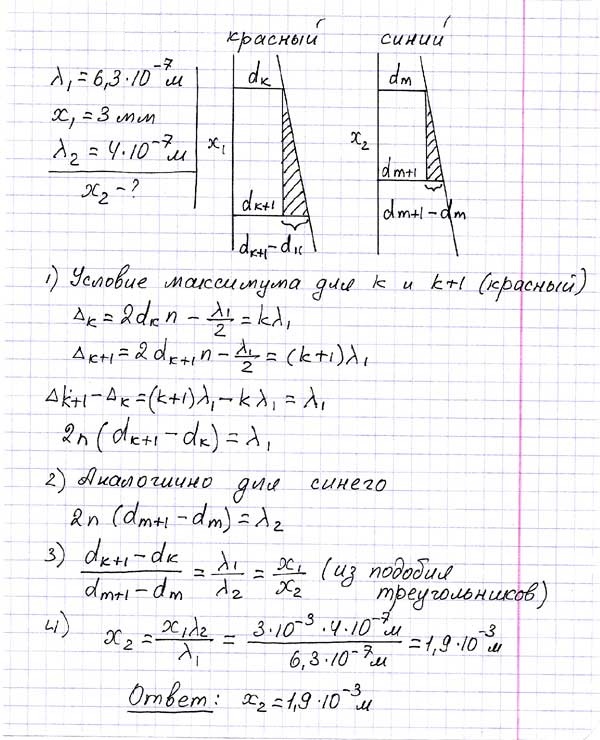 красный синий
λ₁ = 6,3·10⁻⁷м
x₁ = 3 мм
λ₂ = 4·10⁻⁷м
x₂ - ?
x₁
dк
dк+1
dк+1 - dк
x₂
dm
dm+1
dm+1 - dm
1) Условие максимума для к и к+1 (красный)
Δк = 2dк n - λ₁/2 = kλ₁
Δк+1 = 2dк+1 n - λ₁/2 = (k+1)λ₁
Δк+1 - Δк = (k+1)λ₁ - kλ₁ = λ₁
2n(dк+1 - dк) = λ₁
2) Аналогично для синего
2n (dm+1 - dm) = λ₂
3) (dк+1 - dк)/(dm+1 - dm) = λ₁/λ₂ = x₁/x₂ (из подобия
треугольников)
4) x₂ = x₁λ₂/λ₁ = (3·10⁻³·4·10⁻⁷м)/(6,3·10⁻⁷м) = 1,9·10⁻³м
Ответ: x₂ = 1,9·10⁻³м